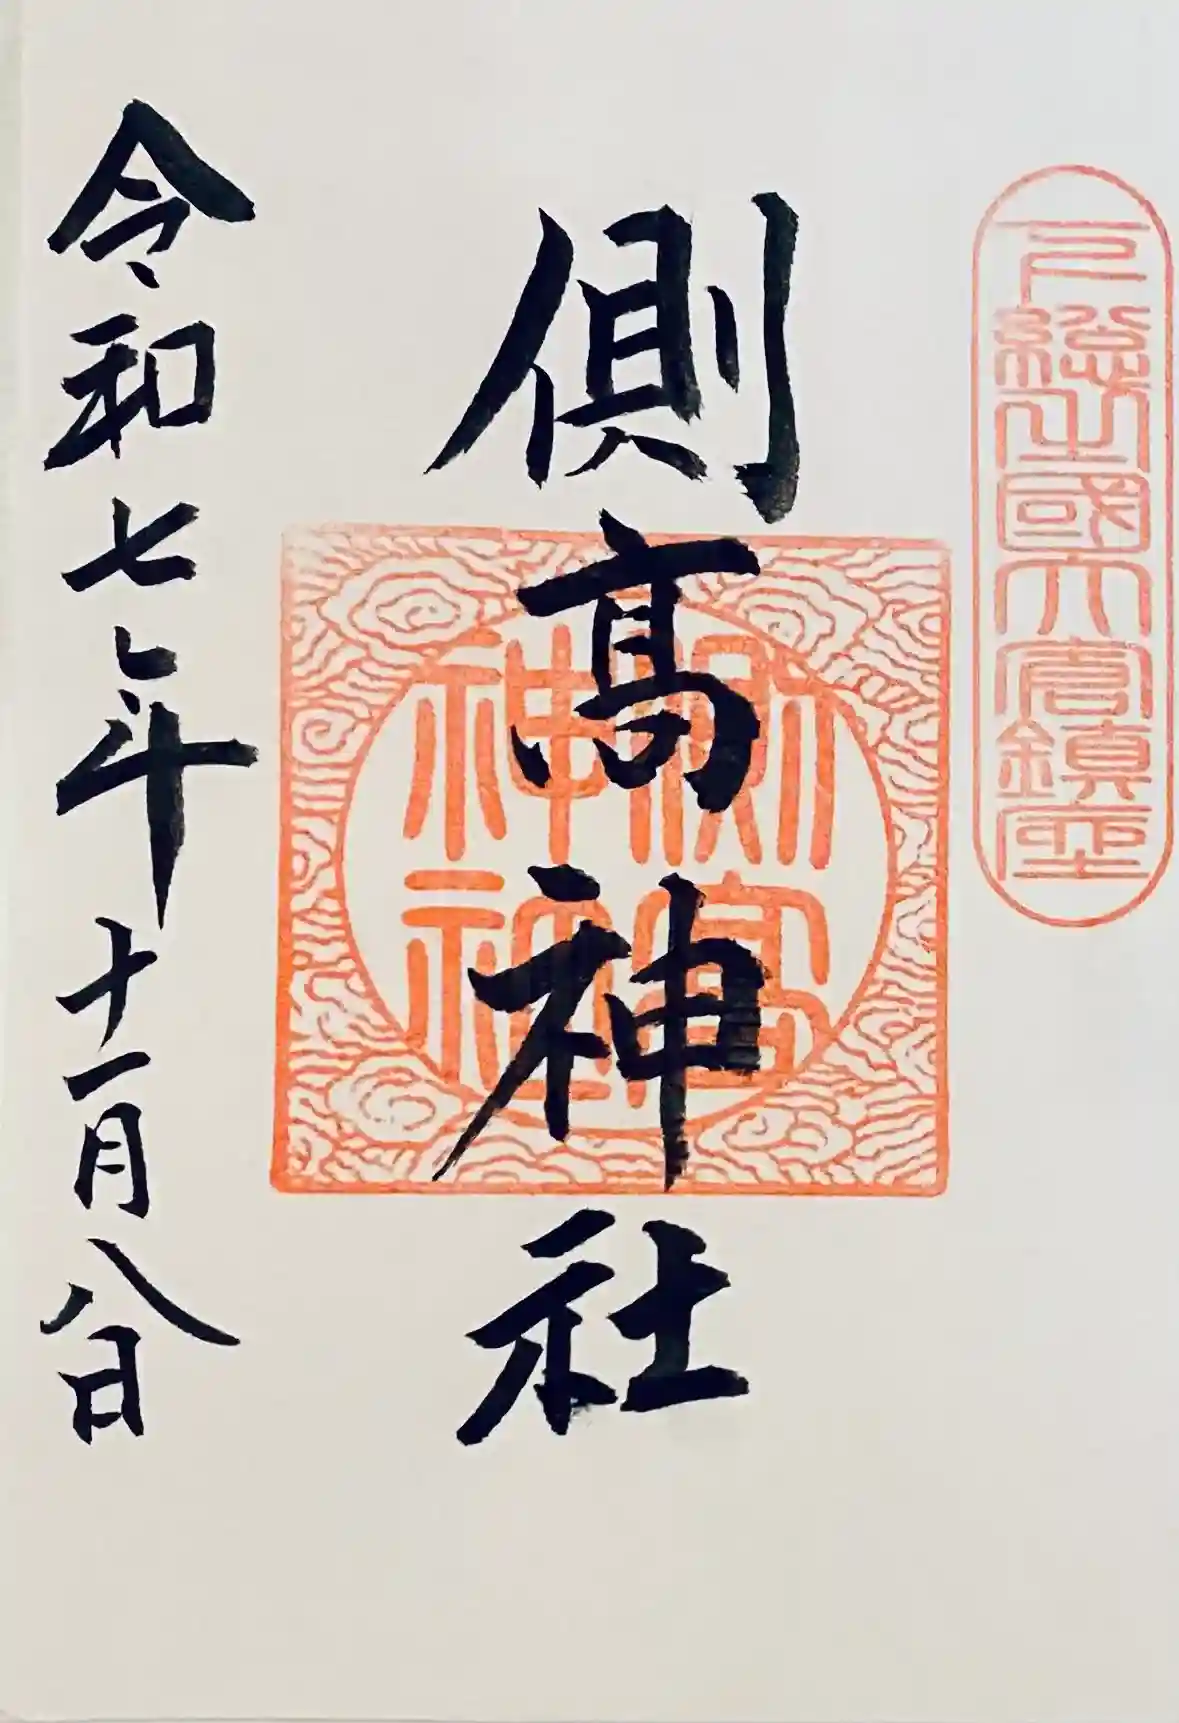 下總上國大倉鎮座
側高神社
側高神社
令和七年十一月八日